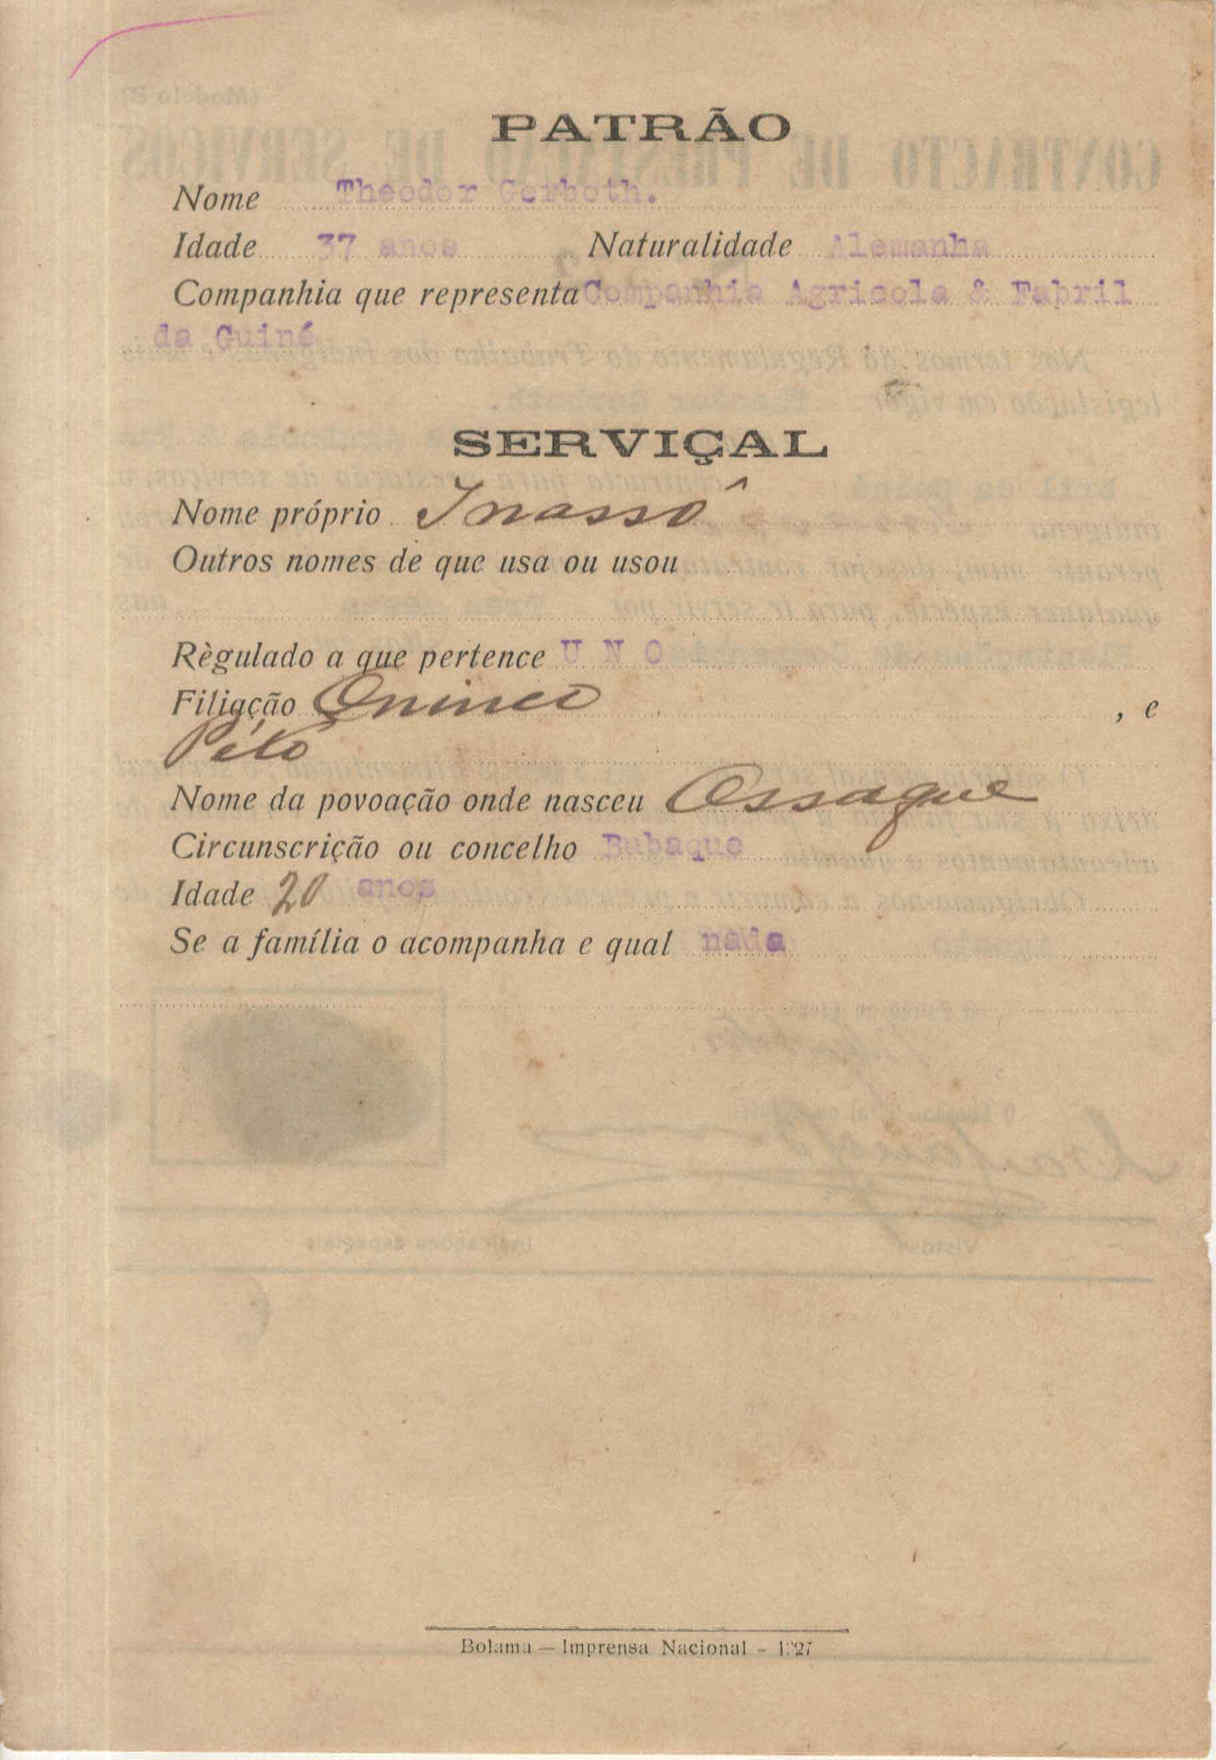 PATRÃO
Nome Theodor Gerboth.
Idade 37 anos Naturalidade Alemanha
Companhia que representa Companhia Agricola & Fabril
da Guiné
SERVIÇAL
Nome próprio Inassô
Outros nomes de que usa ou usou
Règulado a que pertence U N O
Filiação Oninco , e
Péto
Nome da povoação onde nasceu Ossaque
Circunscrição ou concelho Bubaque
Idade 20 anos
Se a família o acompanha e qual nada
Bolama — Imprensa Nacional - 1927